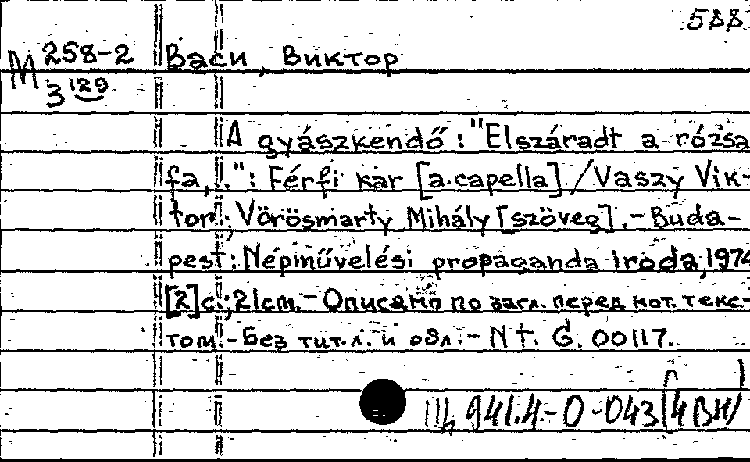 588
М 258-2 Васи, Виктор
3 129
A gyászkendő: "Elszáradt a rózsa
fa,.": Férfi kar [a capella] / Vaszy Vik-
tor.; Vörösmarty Mihály [szöveg]. - Buda-
pest: Népművelési propaganda Iroda, 1974
[2]с.; 21cm. - Описано по загл. перед нот. текс-
том. - Без тит. л. и обл. - N t. G. 00117.
Щ 941.4-0-043(4ВН)